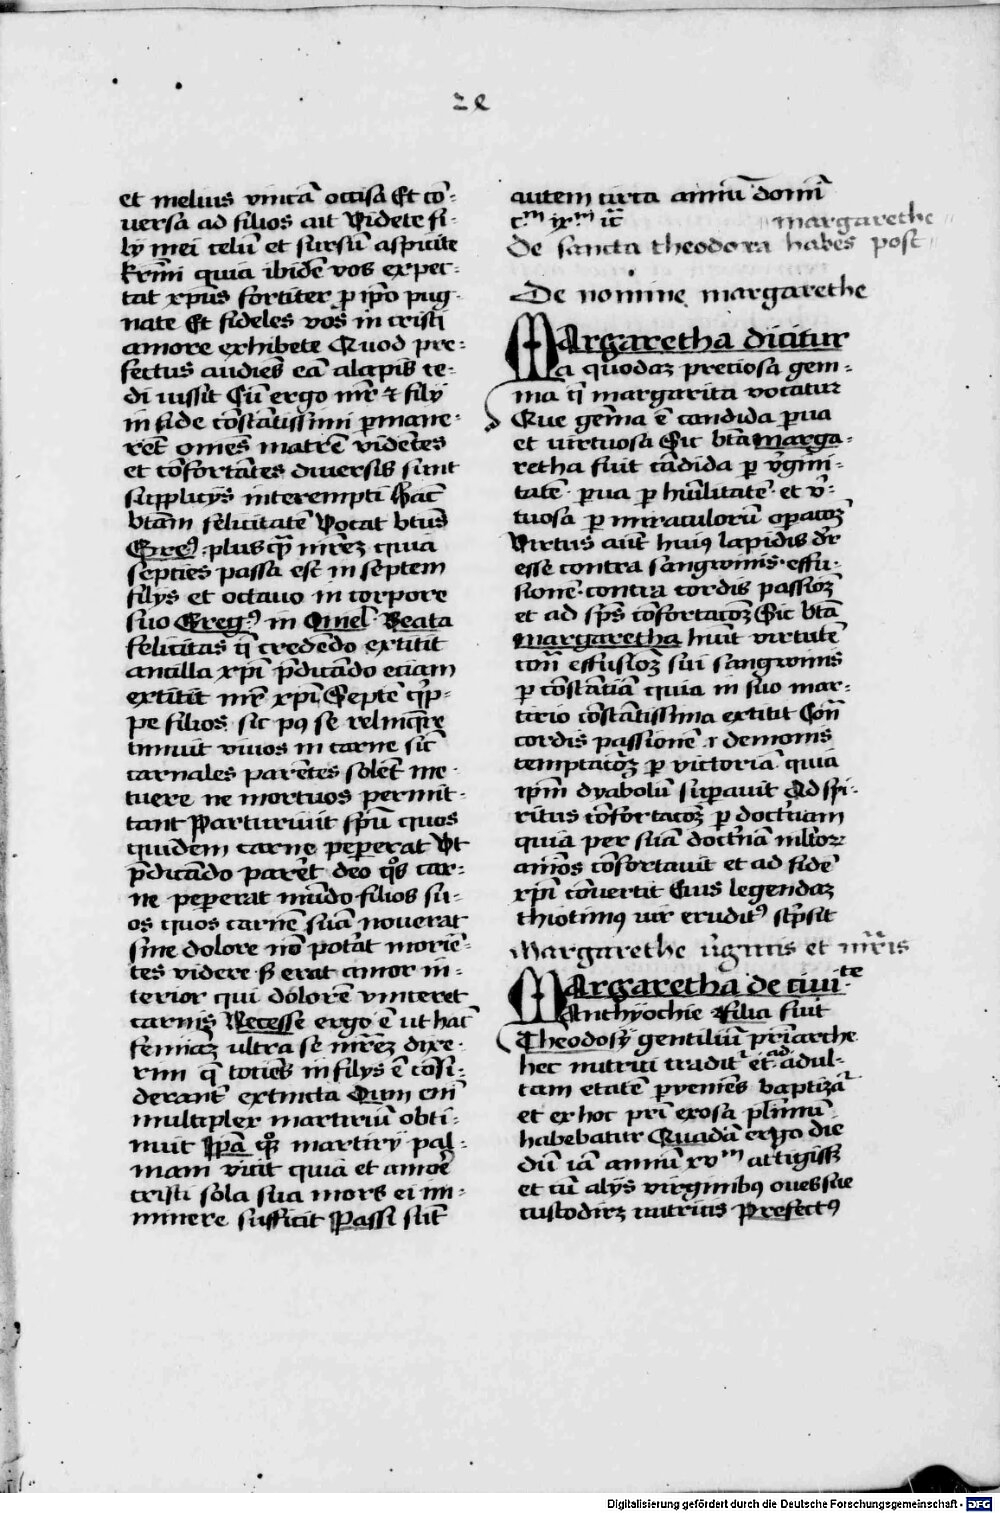 2e
et melius vincā occisa Et cō-
versa ad filios ait Videte fi-
lÿ mei celū et sursū aspicite
kr̄mi quia ibidē vos expec-
tat xp̄us fortiter p ip̄o pug-
nate Et fideles vos in cristi
amore exhibete Quod pre-
fectus audiēs eā alapis ce-
di iussit Cū ergo mr̄ et filÿ
in fide cōstātissimi pmane-
rēt om̄es matrē vidētes
et cōfortātes diversis sunt
supplicÿs interempti Hāc
btām felicitatē vocat btūs
Greg⁹ plusq̄ mr̄eʒ quia
septies passa est in septem
filÿs et octavo in corpore
suo Greg⁹ in Omel̄ Beata
felicitas q̄ credēdo extitit
ancilla xp̄i p̄dicādo eciam
extitit mr̄ xp̄i Septē q̄p-
pe filios sic p⁹ se relinq̄re
timuit vivos in carne sic̄
carnales parētes solēt me-
tuere ne mortuos permit-
tant Parturivit sp̄u quos
quidem carne pepererat Ut
p̄dicādo parēt deo q̄s car-
ne pepererat mūdo filios su-
os quos carnē suā noverat
sine dolore nō potāt moriē-
tes videre s̄ erat amor in-
terior qui dolorē vinceret
carnis Recesse ergo ē ut hāc
femiāʒ ultra se mr̄eʒ dixe-
rim q̄ tociēs in filÿs ē cōsi-
derant̄ extincta Qum em̄
multiplex martiriū obti-
nuit Ip̄ā q̄ martirÿ pal-
mam vicit quia et amoē
cristi sola sua mors ei mi-
nimere sufficit Passi sūt
autem circa annū domī
c.ᵐ ix.ᵐ
margarethe
De sancta theodora habes post
De nomine margarethe
Margaretha dicitur
a quodaʒ preciosa gem-
ma q̄ margarita vocatur
Que gēma ē candida pua
et virtuosa Sic btā marga-
retha fuit cādida p v̄gini-
tatē pua p hūilitatē et v̄-
tuosa p miraculorū opacōʒ
Virtus aūt hui⁹ lapidis dr̄
esse contra sanguinis effu-
sionē contra cordis passiōʒ
et ad sp̄s cōfortacōʒ Sic btā
margaretha huīt virtutē
con̄ effusiōʒ sui sanguinis
p cōstātiā quia in suo mar-
tirio cōstātissima extitit Con̄
cordis passionē et demonis
temptacōʒ p victoriā quia
ip̄m dyabolū supavit Ad spi-
ritus cōfortacōʒ p doct'nam
quia per suā doct'nā mltoꝝ
aīos cōfortavit et ad fidē
xp̄i cōvertit Eius legendaʒ
thiotimus vir erudit⁹ sc̄psit
Margarethe v̄ginis et mr̄is
Margaretha de civi.te
Anthÿochie filia fuit
Theodosÿ gentiliū pr̄iarche
hec nutrici tradit' et ad adul-
tam etatē pveniēs baptizā'
et ex hoc pr̄i exosa pl̄imū
habebatur Quadā ergo die
dū iā annū xvᵐ attigiss̄
et cū alÿs virginib⁹ oves sue
custodireʒ nutricis Prefect⁹
Digitalisierung gefördert durch die Deutsche Forschungsgemeinschaft - DFG